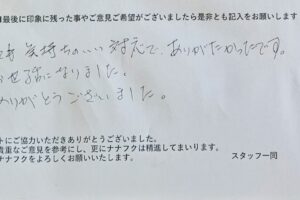 最後に印象に残った事やご意見ご希望がございましたら是非とも記入をお願いします
気持ちのいい対応で、ありがたかったです。
お世話になりました。
ありがとうございました。
トにご協力いただきありがとうございました。
貴重なご意見を参考にし、更にナナフクは精進してまいります。
ナナフクをよろしくお願いいたします。
スタッフ一同